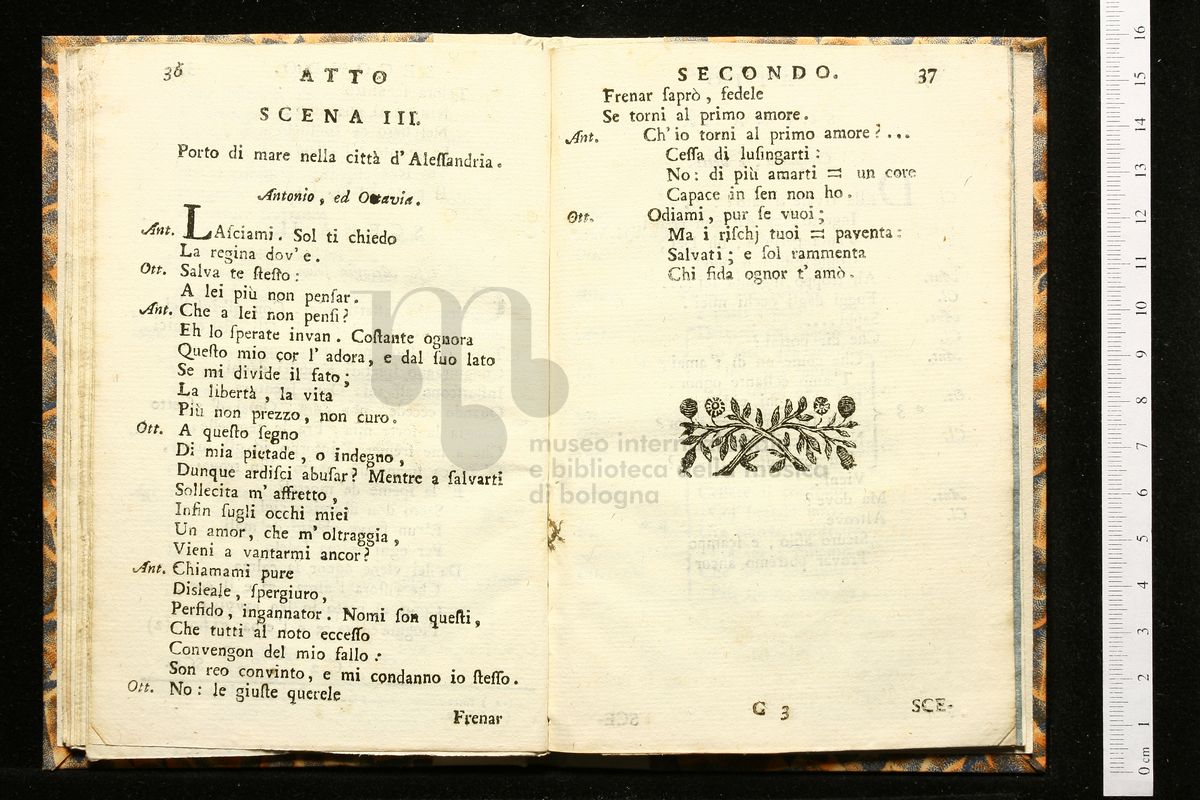 36 ATTO
SCENA III.
Porto di mare nella città d'Aleſſandria.
Antonio, ed Ottavia.
Ant. LAſciami. Sol ti chiedo
La regina dov'e.
Ott. Salva te ſteſſo:
A lei più non penſar.
Ant. Che a lei non penſi?
Eh lo ſperate invan. Coſtante ognora
Queſto mio cor l'adora, e dal ſuo lato
Se mi divide il fato;
La libertà, la vita
Più non prezzo, non curo.
Ott. A queſto ſegno
Di mia pietade, o indegno,
Dunque ardiſci abuſar? Mentre a ſalvarti
Sollecita m'affretto,
Infin ſugli occhi miei
Un amor, che m'oltraggia,
Vieni a vantarmi ancor?
Ant. Chiamami pure
Disleale, ſpergiuro,
Perfido, ingannator. Nomi ſon queſti,
Che tutti al noto ecceſſo
Convengon del mio fallo:
Son reo convinto, e mi condanno io ſteſſo.
Ott. No: le giuſte querele
Frenar
SECONDO. 37
Frenar ſaprò, fedele
Se torni al primo amore.
Ant. Ch'io torni al primo amore?...
Ceſſa di luſingarti:
No: di più amarti = un core
Capace in ſen non ho.
Ott. Odiami, pur ſe vuoi;
Ma i riſchj tuoi = paventa:
Salvati; e ſol rammenta
Chi fida ognor t'amò.
G 3 SCE-
museo inter
e biblioteca della musica
di bologna
0 cm 1 2 3 4 5 6 7 8 9 10 11 12 13 14 15 16